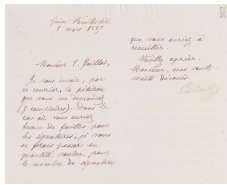 5 mars 1897
Monsieur E. Gaillot,
Je vous envoie, par
ce courrier, la pétition
que vous me demandez
(5 exemplaires). Dans le
cas où vous auriez
besoin de feuilles pour
les signatures, je vous
en ferais passer en
quantité voulue pour
le nombre de signatures
que vous auriez à
recueillir.
Veuillez agréer,
Monsieur, mes
dévoués